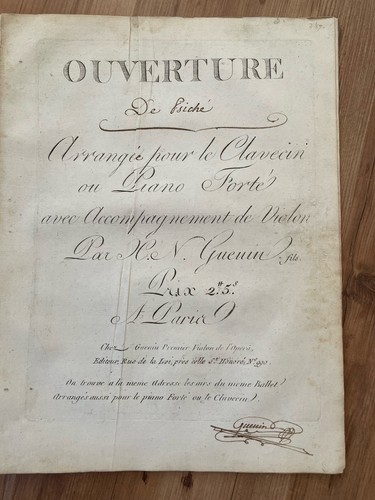 OUVERTURE
De Psiché
Arrangée pour le Clavecin
ou Piano Forté
avec Accompagnement de Violon
Par H. N. Guenin, fils.
Prix 2.# 5.s
A Paris
Chez Guenin Premier Violon de l'Opera,
Editeur, Rue de la Loi, près celle St. Hònoré, No.
On trouve a la meme Adresse les airs du meme Ballet
Arrangés aussi pour le piano Forté ou le Clavecin
Guenin